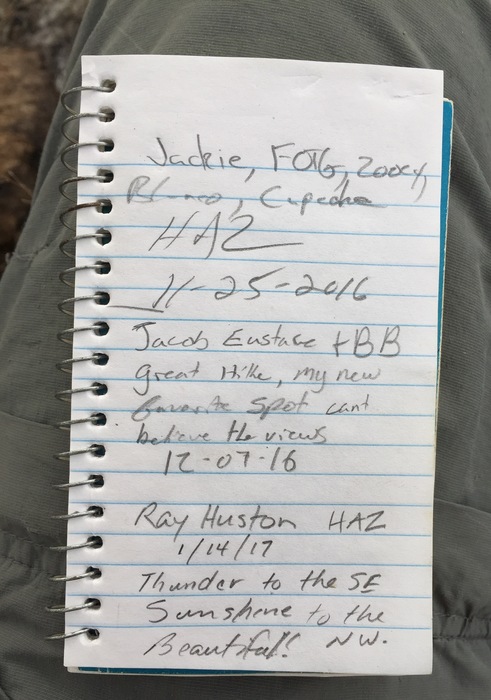 Jackie, FOTG, Zoocy,
Blanco, Cupcake
HAZ
11-25-2016
Jacob Eustace + BB
Great Hike, my new
favorite spot cant
believe the views
12-07-16
Ray Huston HAZ
1/14/17
Thunder to the SE
Sunshine to the
Beautiful! NW.